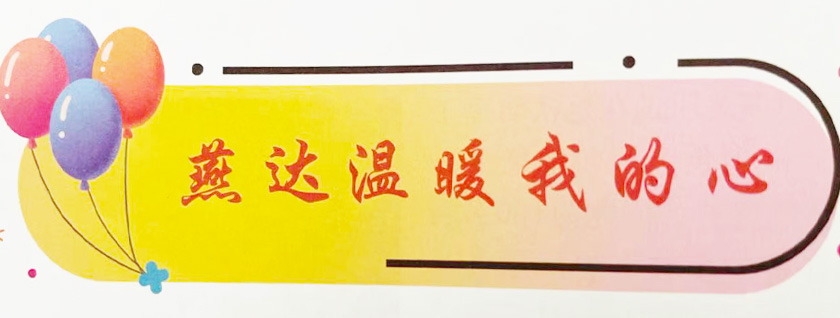 燕达温暖我的心